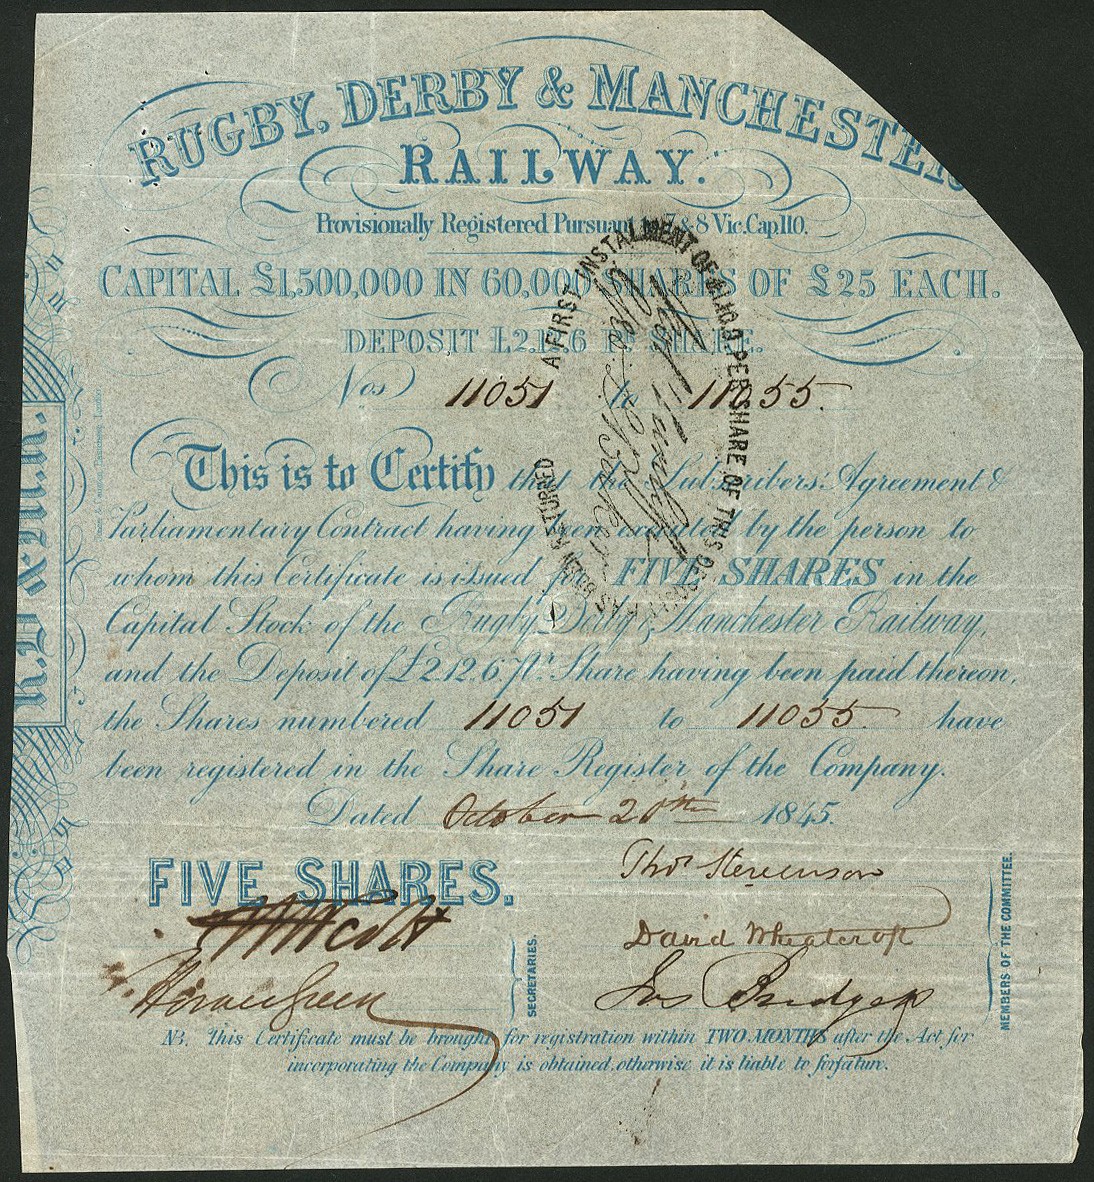 RUGBY, DERBY & MANCHESTER
RAILWAY.
Provisionally Registered Pursuant to 7 & 8 Vic. Cap. 110.
CAPITAL £1,500,000 IN 60,000 SHARES OF £25 EACH.
DEPOSIT £2.12.6 Pr. SHARE.
Nos 11051 to 11055.
This is to Certify that the Subscribers' Agreement &
Parliamentary Contract having been executed by the person to
whom this Certificate is issued for FIVE SHARES in the
Capital Stock of the Rugby, Derby & Manchester Railway,
and the Deposit of £2.12.6 Pr. Share having been paid thereon,
the Shares numbered 11051 to 11055 have
been registered in the Share Register of the Company.
Dated October 20th 1845.
FIVE SHARES.
Thos Stevenson
David Wheatcroft
Horace Green
Jos Bridges
SECRETARIES.
MEMBERS OF THE COMMITTEE.
NB. This Certificate must be brought for registration within TWO MONTHS after the Act for
incorporating the Company is obtained, otherwise it is liable to forfature.
A FIRST INSTALMENT OF PER SHARE OF THIS DEPOSIT HAS BEEN RETURNED
R.D & M.R.